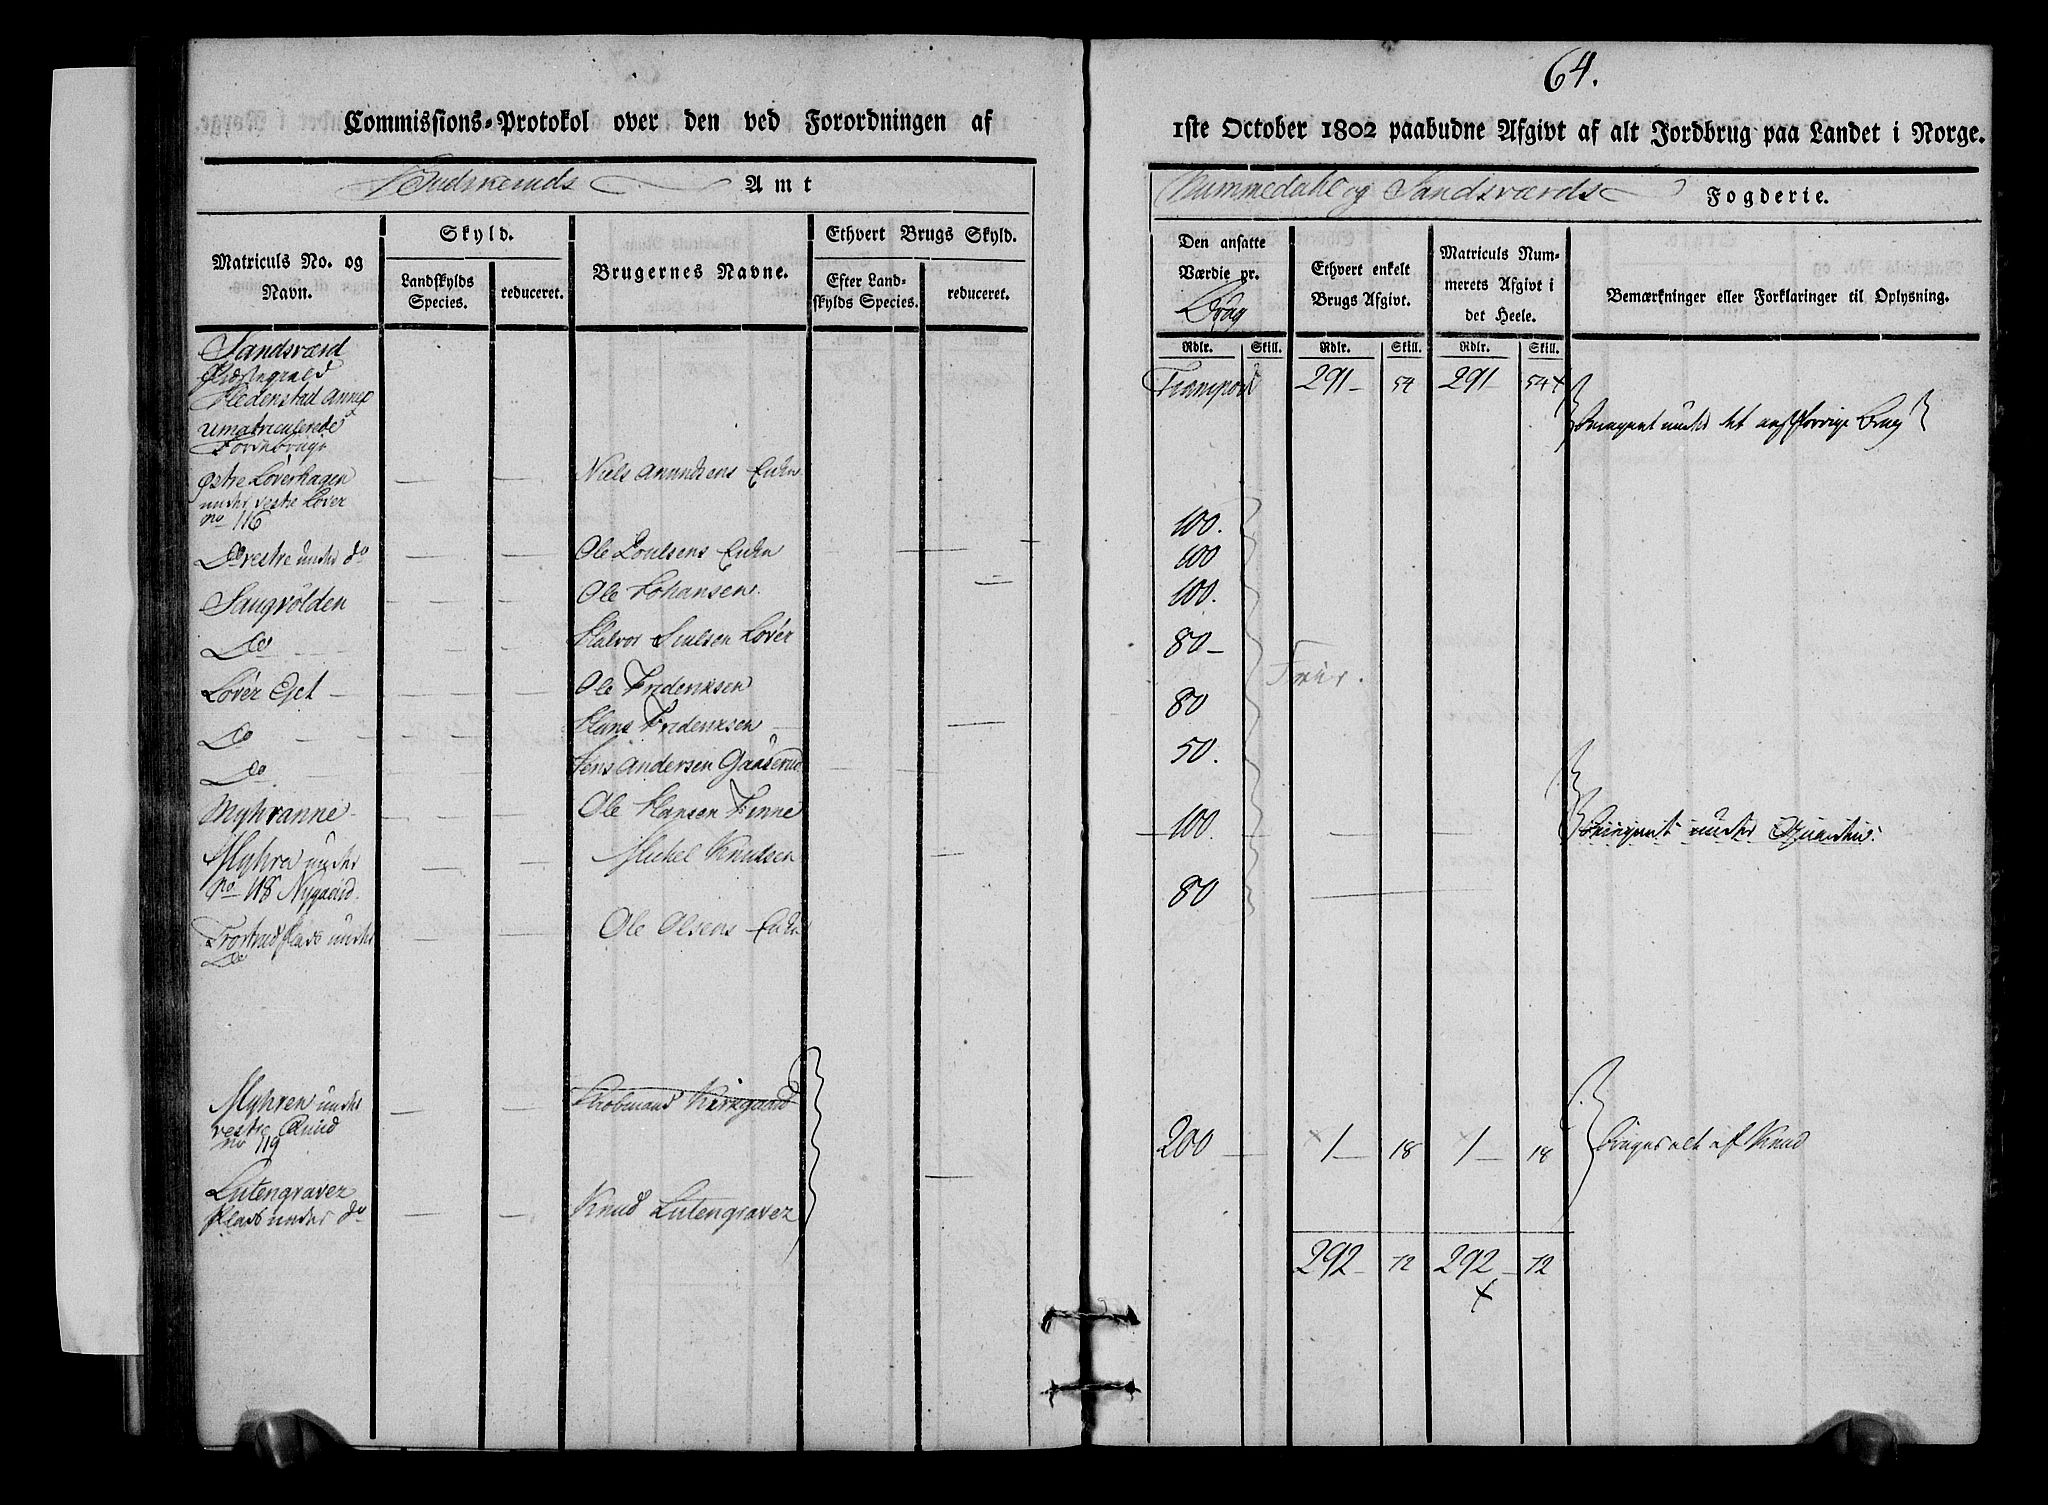 64.
Commissions-Protokol over den ved Forordningen af
1ste October 1802 paabudne Afgivt af alt Jordbrug paa Landet i Norge.
Budskeruds Amt
Nummedahl og Sandsværds Fogderie.
Matriculs No. og Navn.
Skyld.
Landskylds Species.
reduceret.
Brugernes Navne.
Ethvert Brugs Skyld.
Efter Landskylds Species.
reduceret.
Den ansatte Værdie pr. Brug
Ethvert enkelt Brugs Afgivt.
Matriculs Nummerets Afgivt i det Heele.
Bemærkninger eller Forklaringer til Oplysning.
Rdlr. Skill. Rdlr. Skill. Rdlr. Skill.
Sandsværd
Hedenstad Annex
Transport 291 54 291 54
umatriculerede
østre Løverhagen Niels Amundsens Enke
under vestre Løver
no 116 100.
Do vestre under do Ole Poulsens Enke 100
Saugvolden Ole Johansen 100.
Do Halvor Løver 80
Løver Eget Ole Fredericksen 80
Frie.
Do Hans Fredericksen 50.
Do Jens Andersen Gaaserud
Myhranne Ole Hansen Finne 100
Myhra under Michel Knudsen
no 118 Nygaard 80
Plads under Ole Olsens Enke
Do
Myhren under Kirkgaard
vestre
no 119 200 1 18 1 18
af Knud
Lutengraver
Plads under do Knud Lutengraver
292 72 292 72